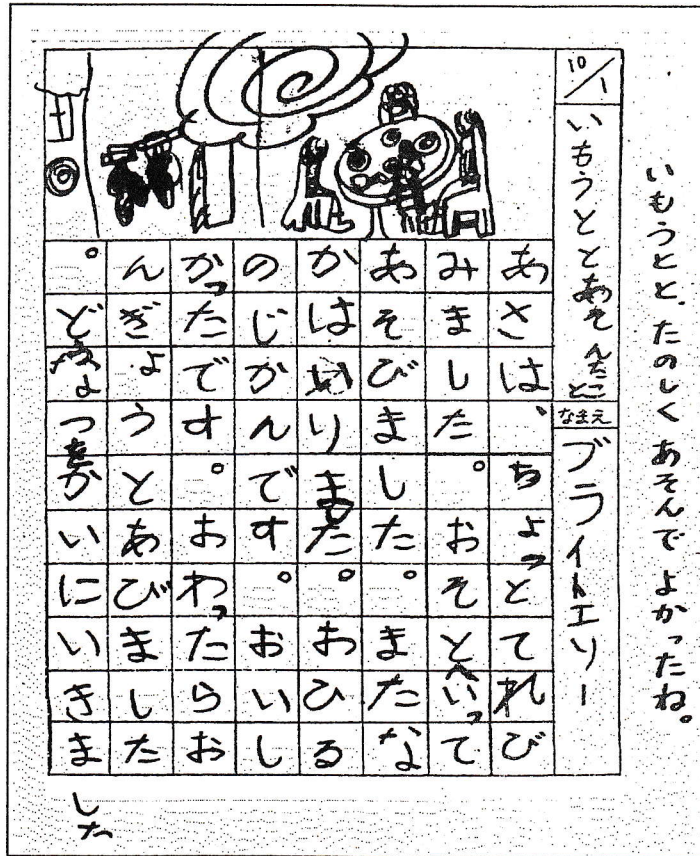 いもうとと、たのしくあそんでよかったね。
10/1
いもうととあそんだとこ
なまえ
ブライトエリー
あさは、ちょっとてれび
みました。おそとへいって
あそびました。またな
かはいりました。おひる
のじかんです。おいし
かったです。おわったらお
んぎょうとあびました
。どつをかいにいきま
した